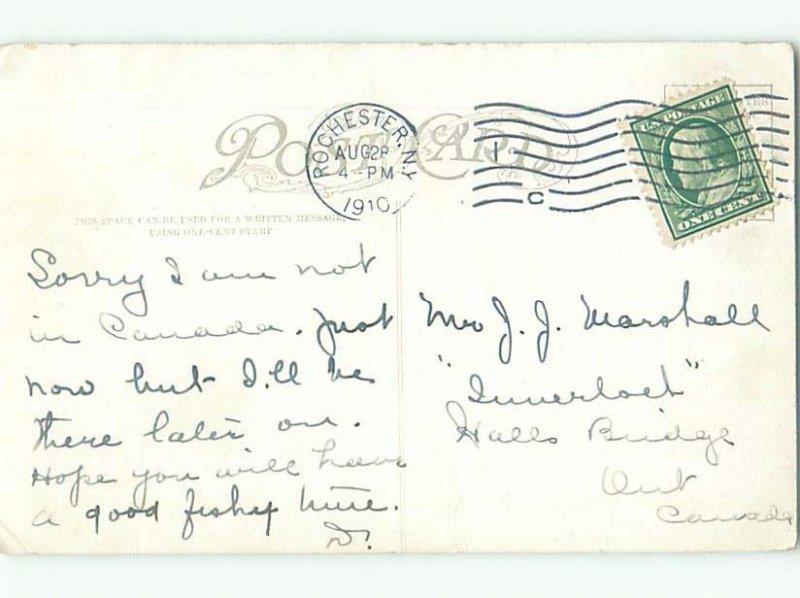 POST CARD
ROCHESTER, N.Y.
AUG 28
4-PM
1910
1
C
U.S. POSTAGE
ONE CENT
THIS SPACE CAN BE USED FOR A WRITTEN MESSAGE,
USING ONE-CENT STAMP
Sorry I am not
in Canada. Just
now but I'll be
there later on.
Hope you will have
a good fishy time.
D.
J. J. Marshall
Halls Bridge
Ont
Canada